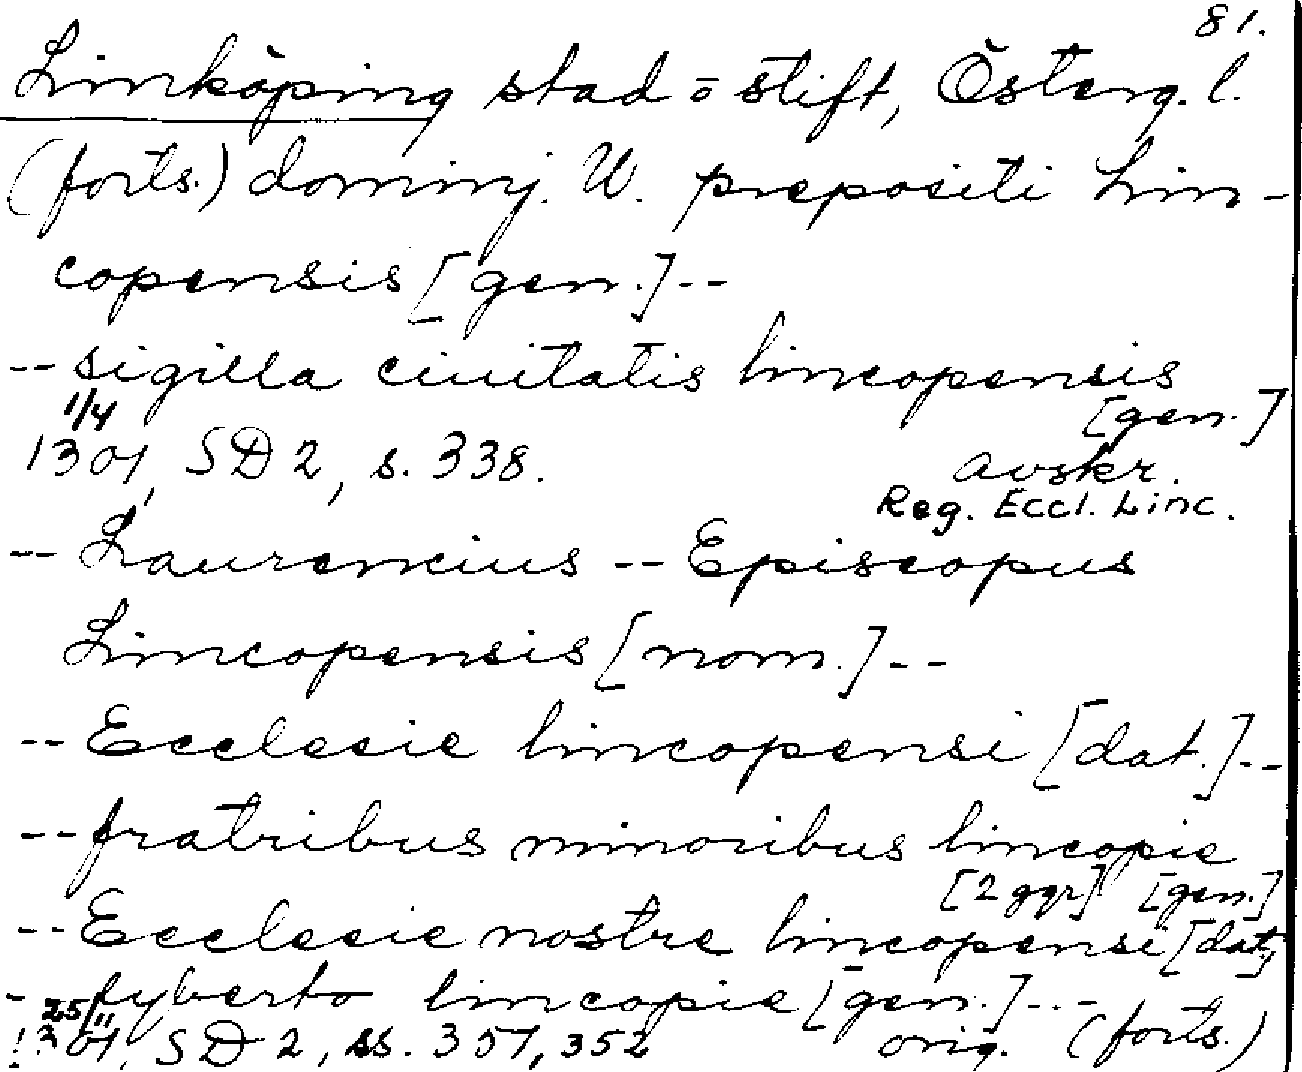 81.
Linköping stad o stift, Österg. l.
(forts.) dominj. W. prepositi Lin-
copensis [gen.] --
-- sigilla ciuitatis lincopensis
[gen.]
1/4
1301, SD 2, s. 338. avskr.
Reg. Eccl. Linc.
-- Laurencius -- Episcopus
Lincopensis [nom.] --
-- Ecclesie lincopensi [dat.] --
-- fratribus minoribus lincopie
[2 ggr] [gen.]
-- Ecclesie nostre lincopensi [dat.]
- fyberto lincopie [gen.] ---
25/11
1301, SD 2, ss. 351, 352 orig. (forts.)